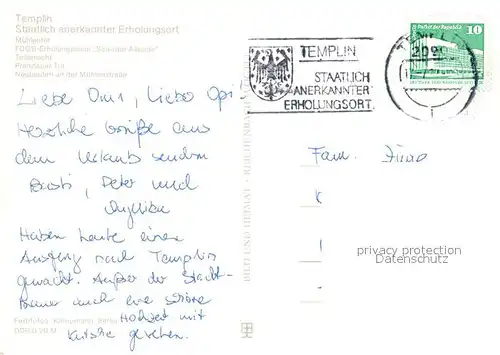 Templin
Staatlich anerkannter Erholungsort
Mühlentor
FDGB-Erholungsheim "Salvador Allende"
Prenzlauer Tor
Neubauten an der Mühlenstraße
Liebe Omi, Lieber Opi!
Herzliche Grüße aus
dem Urlaub senden
Peter und
Haben heute einen
Ausflug nach Templin
gemacht. Außer der Stadt-
mauer auch eine schöne
Hochzeit mit
Kutsche gesehen.
BILD UND HEIMAT
TEMPLIN
STAATLICH
ANERKANNTER
ERHOLUNGSORT
TEMPLIN
2090
Palast der Republik
10
Fam.
privacy protection
Datenschutz